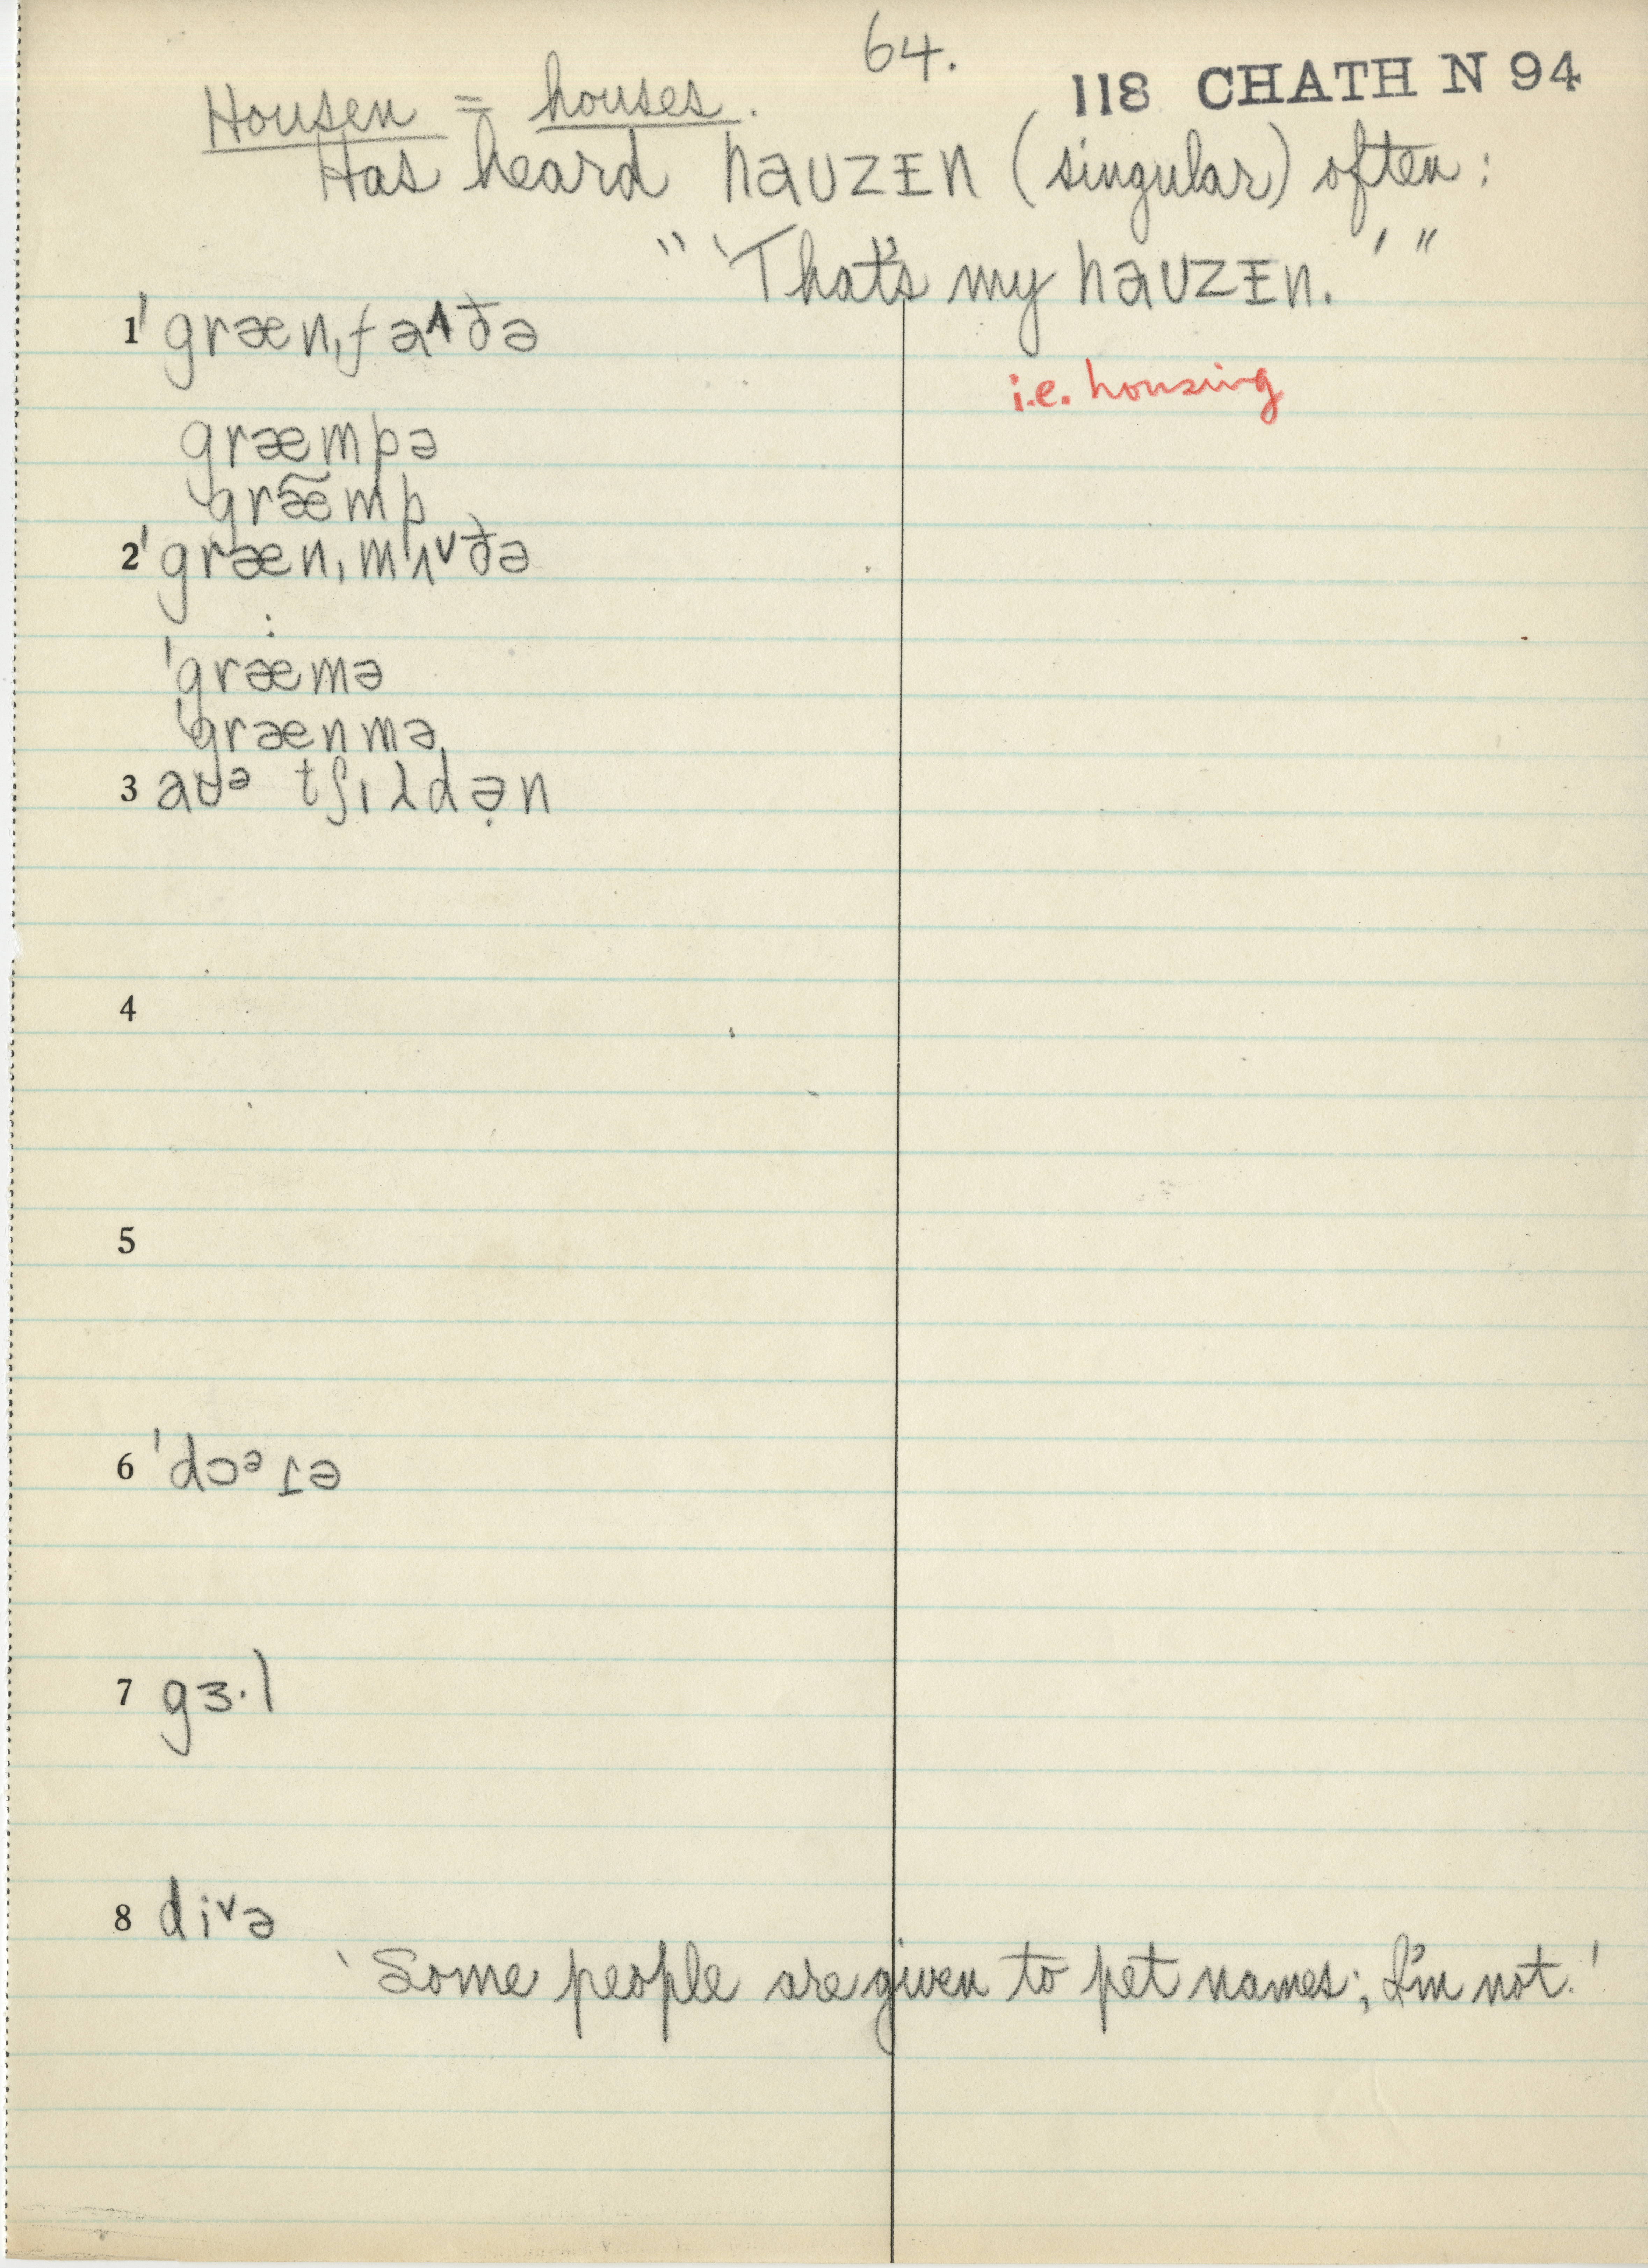 64.
118 CHATH N 94
Housen = houses.
Has heard haʊzɪn (singular) often:
"'That's my haʊzɪn.'"
i.e. housing
1 ˈgrænˌfa^ðə
græmpə
græ̃mp
2 ˈgrænˌmʌ˅ðə
:
ˈgræmə
ˈgrænmə
3 aʊᵊ tʃɪλdə̣n
4
5
6 ˈdɔᵊɾə
7 gɜ·l
8 di˅ə
'Some people are given to pet names; I'm not.'